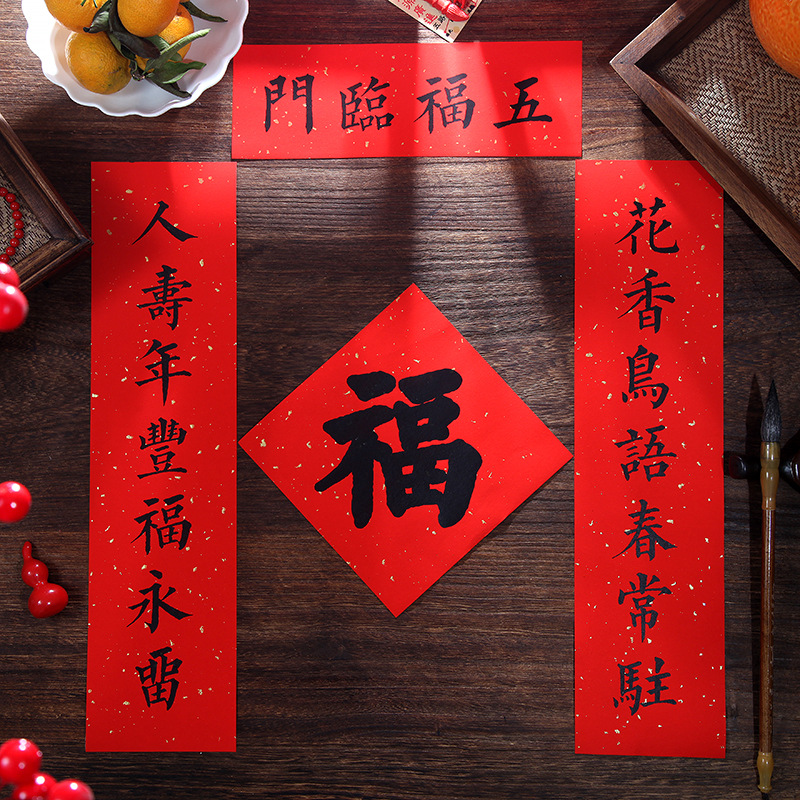 五福臨門
花香鳥語春常駐
人壽年豐福永留
福